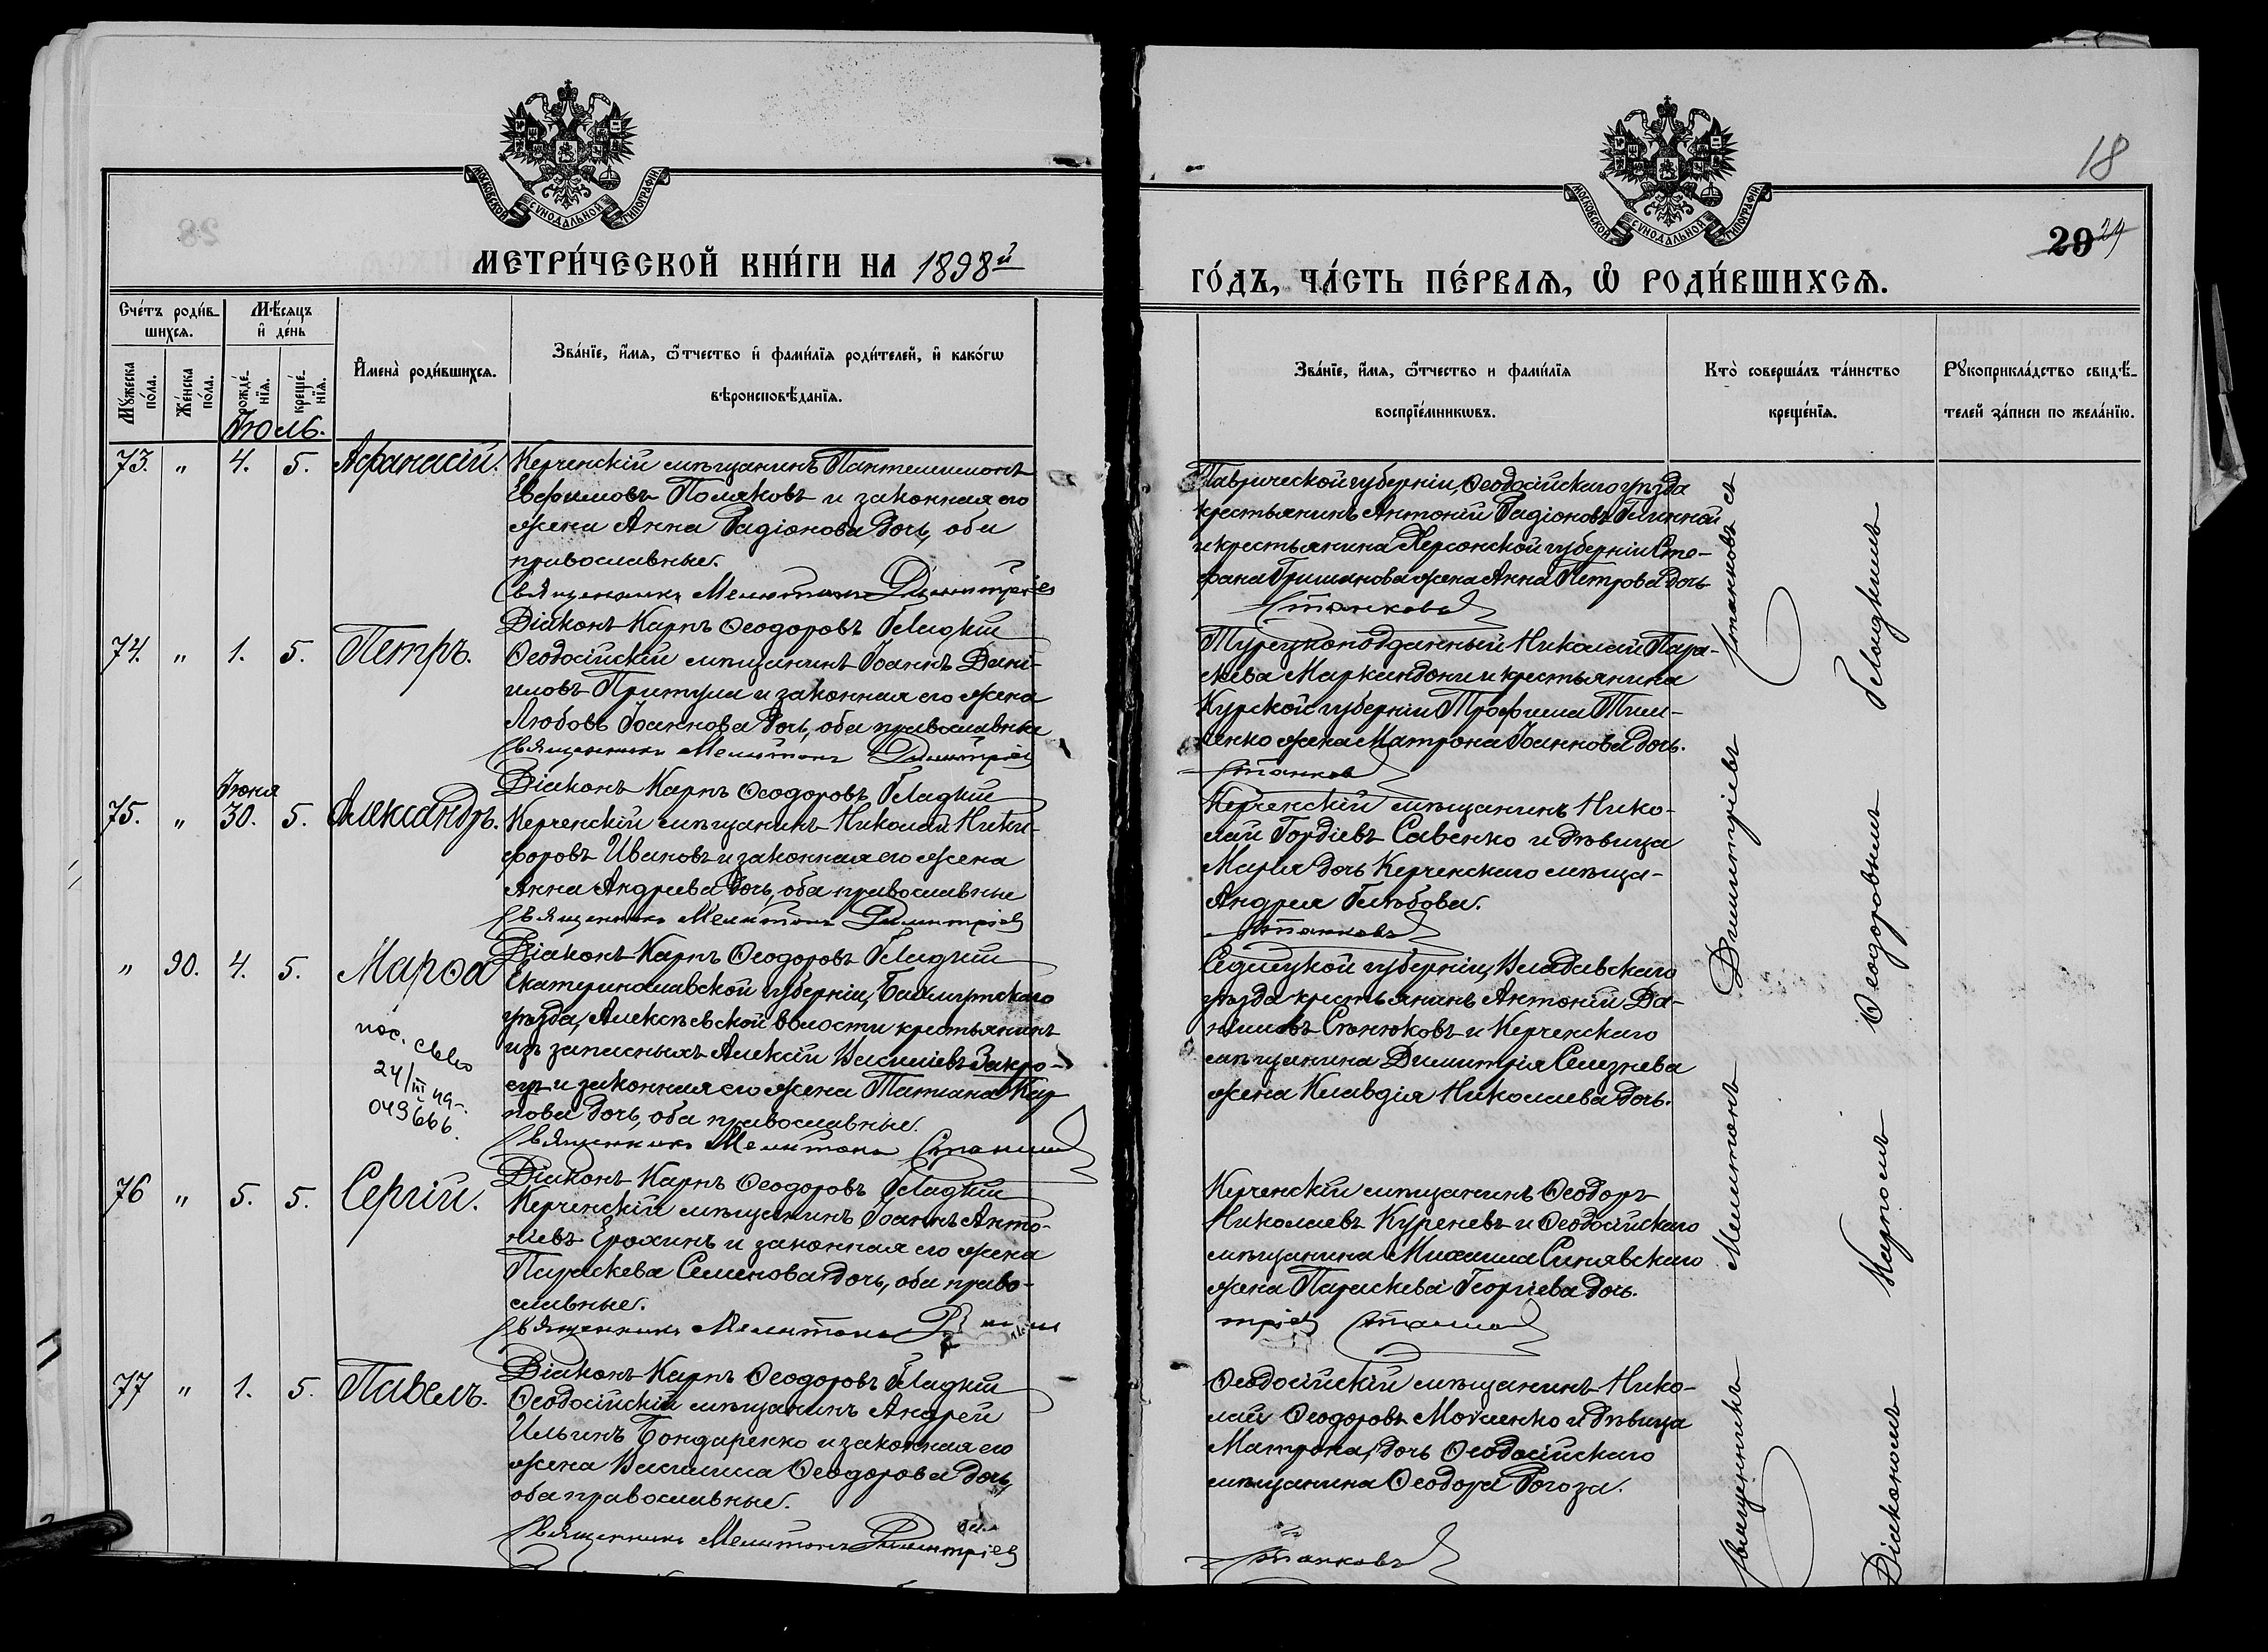 МОСКОВСКОЙ СѴНОДАЛЬНОЙ ТИПОГРАФІИ
МЕТРИ́ЧЕСКОЙ КНИ́ГИ НА 1898й
Сче́тъ роди́в-
шихся.
Мѣ́сяцъ
и҆ де́нь
Мꙋ́жеска
по́ла.
Же́нска
по́ла.
рожде́-
нїѧ.
креще́-
нїѧ.
И҆мена̀ роди́вшихся.
Зва́нїе, и҆́мѧ, ѻ҆́тчество и҆ фами́лїѧ роди́телей, и҆ како́гѡ
вѣроисповѣ́данїѧ.
Іюль.
73. " 4. 5. Афанасій.
Керченскій мѣщанинъ Пантелиимонъ
Евфимовъ Поляковъ и законная его
жена Анна Радіонова дочь, оба
православные.
Священникъ Мелитонъ Димитріев
Діаконъ Карпъ Ѳеодоровъ Гладкій
74. " 1. 5. Петръ.
Ѳеодосійскій мѣщанинъ Іоаннъ Дані-
иловъ Притула и законная его жена
Любовь Іоаннова дочь, оба православные
Священникъ Мелитонъ Димитріев
Діаконъ Карпъ Ѳеодоровъ Гладкій
Іюня
75. " 30. 5. Александръ.
Керченскій мѣщанинъ Николай Ники-
форовъ Ивановъ и законная его жена
Анна Андреева дочь, оба православные
Священникъ Мелитонъ Димитріев
Діаконъ Карпъ Ѳеодоровъ Гладкій
" 90. 4. 5. Марѳа
Екатеринославской губерніи, Бахмутскаго
уѣзда, Алексѣевской волости крестьянинъ
изъ запасныхъ Алексій Василіевъ Закро-
ецъ и законная его жена Татіана Кар-
пова дочь, оба православные.
24/III 49
049666.
Священникъ Мелитонъ
Діаконъ Карпъ Ѳеодоровъ Гладкій
76 " 5. 5. Сергій.
Керченскій мѣщанинъ Іоаннъ Анто-
ніевъ Ерохинъ и законная его жена
Параскева Семенова дочь, оба право-
славные.
Священникъ Мелитонъ
Діаконъ Карпъ Ѳеодоровъ Гладкій
77 " 1. 5. Павелъ.
Ѳеодосійскій мѣщанинъ Андрей
Ильинъ Бондаренко и законная его
жена Василиса Ѳеодорова дочь,
оба православные.
Священникъ Мелитонъ Димитріев
МОСКОВСКОЙ СѴНОДАЛЬНОЙ ТИПОГРАФІИ
18
29
ГО́ДЪ, ЧА́СТЬ ПЕ́РВАѦ, Ѡ҆ РОДИ́ВШИХСѦ.
Зва́нїе, и҆́мѧ, ѻ҆́тчество и фами́лїѧ
воспрїе́мникѡвъ.
Кто̀ соверша́лъ та́инство
креще́нїѧ.
Рꙋкоприкла́дство свидѣ́-
телей за́писи по жела́нїю.
Таврической губерніи, Ѳеодосійскаго уѣзда
крестьянинъ Антоній Радіоновъ Глинной
и крестьянина Херсонской губерніи Сте-
фана Гришанова жена Анна Петрова дочь
Станковъ
Турецкоподданный Николай Пара-
скева Маркандони и крестьянина
Курской губерніи Трофима Тим-
ченко жена Матрона Іоаннова дочь.
Станковъ
Керченскій мѣщанинъ Нико-
лай Гордіевъ Савенко и дѣвица
Марія дочь Керченскаго мѣща-
Андрея Глѣбова.
Станковъ
Седлецкой губерніи, Владавскаго
уѣзда крестьянинъ Антоній Да-
ниловъ Сѣнюковъ и Керченскаго
мѣщанина Димитрія Селезнева
жена Клавдія Николаева дочь.
Керченскій мѣщанинъ Ѳеодоръ
Николаевъ Куреневъ и Ѳеодосійскаго
мѣщанина Михаила Синявскаго
жена Параскева Георгіева дочь.
тріев Станков
Ѳеодосійскій мѣщанинъ Нико-
лай Ѳеодоровъ Моисенко и дѣвица
Матрона, дочь Ѳеодосійскаго
мѣщанина Ѳеодора Рогоза.
Станковъ
Священникъ Мелитонъ Димитріевъ Станковъ съ
Діакономъ Карпомъ Ѳеодоровымъ Гладкимъ